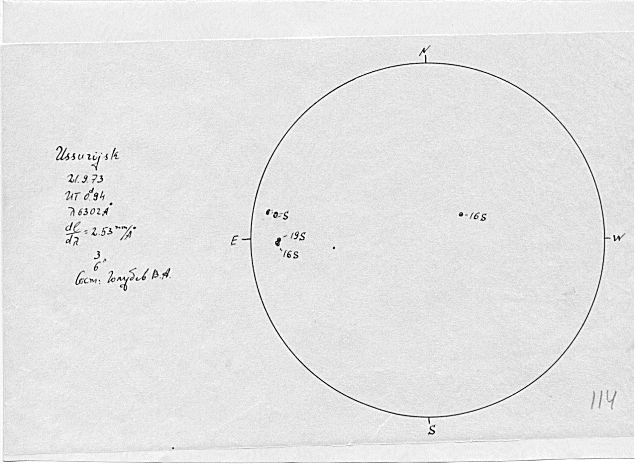 N
Ussurijsk
21.9.73
UT 0ᵈ94
λ 6302Å
dl/dλ = 2.53 mm/Å
3
6"
Сост: Голубев В.А.
-16S
E
-19S
16S
W
S
114